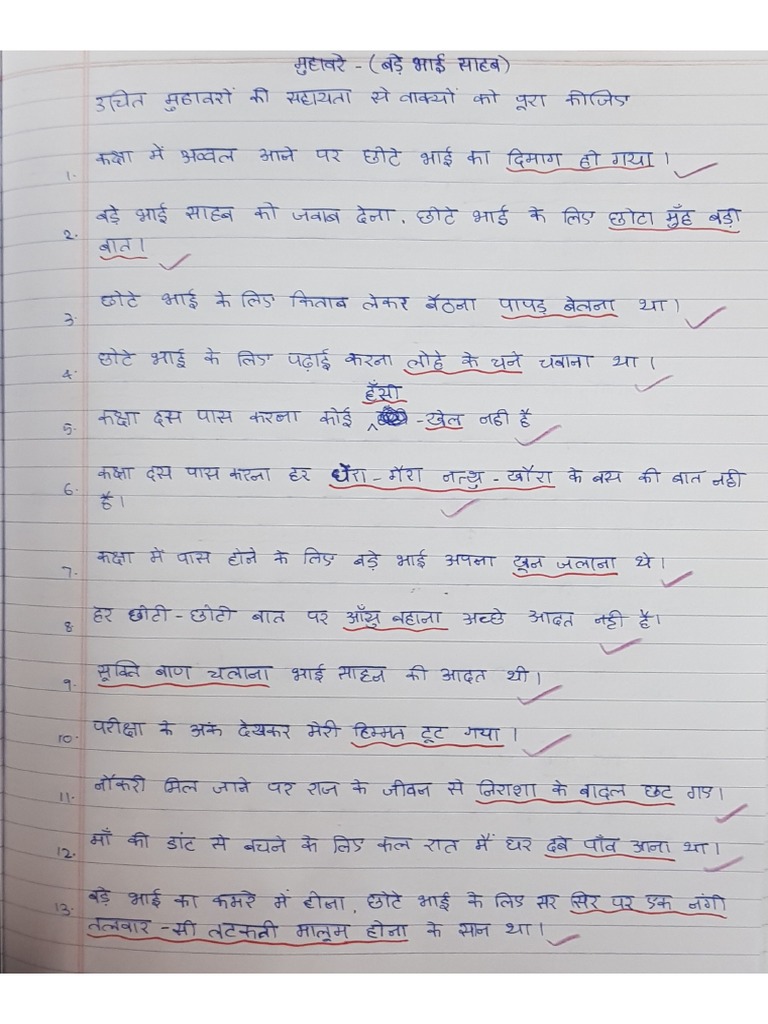 मुहावरे - (बड़े भाई साहब)
उचित मुहावरों की सहायता से वाक्यों को पूरा कीजिए
1. कक्षा में अव्वल आने पर छोटे भाई का दिमाग हो गया।
2. बड़े भाई साहब को जवाब देना, छोटे भाई के लिए छोटा मुँह बड़ी
बात।
3. छोटे भाई के लिए किताब लेकर बैठना पापड़ बेलना था।
4. छोटे भाई के लिए पढ़ाई करना लोहे के चने चबाना था।
हँसी
5. कक्षा दस पास करना कोई - खेल नही है
6. कक्षा दस पास करना हर ऐरा - गैरा नत्थु - खैरा के बस की बात नही
है।
7. कक्षा में पास होने के लिए बड़े भाई अपना खून जलाना थे।
8. हर छोटी - छोटी बात पर आँसु बहाना अच्छे आदत नही है।
9. सूक्ति बाण चलाना भाई साहब की आदत थी।
10. परीक्षा के अंक देखकर मेरी हिम्मत टूट गया।
11. नौकरी मिल जाने पर राज के जीवन से निराशा के बादल छट गए।
12. माँ की डांट से बचने के लिए कल रात मैं घर दबे पाँव आना था।
13. बड़े भाई का कमरे में होना, छोटे भाई के लिए सर सिर पर एक नंगी
तलवार - सी लटकती मालूम होना के सान था।